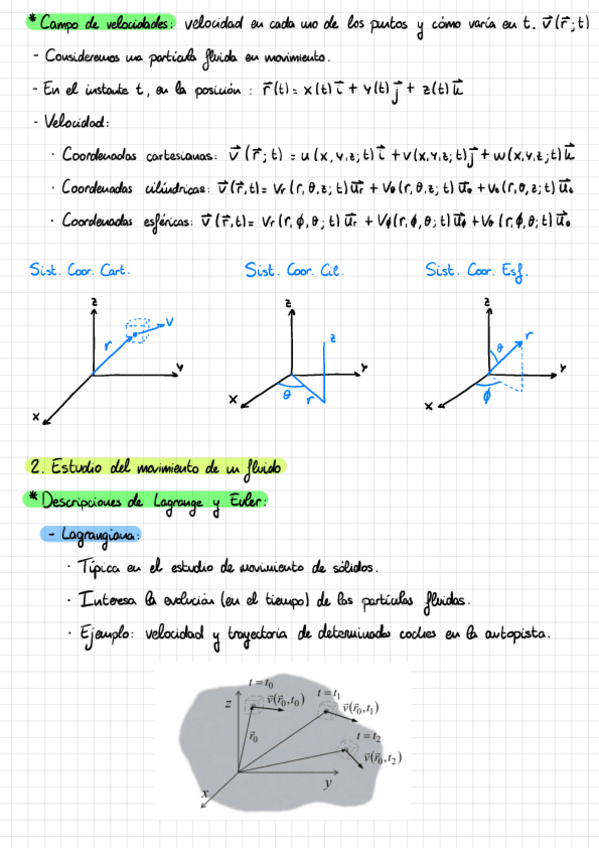 * Campo de velocidades: velocidad en cada uno de los puntos y cómo varía en t. v⃗(r⃗;t)
- Consideremos una partícula fluida en movimiento.
- En el instante t, en la posición: r⃗(t) = x(t)i⃗ + y(t)j⃗ + z(t)k⃗
- Velocidad:
· Coordenadas cartesianas: v⃗(r⃗;t) = u(x,y,z;t)i⃗ + v(x,y,z;t)j⃗ + w(x,y,z;t)k⃗
· Coordenadas cilíndricas: v⃗(r⃗,t) = Vr(r,θ,z;t)u⃗r + Vθ(r,θ,z;t)u⃗θ + Vz(r,θ,z;t)u⃗z
· Coordenadas esféricas: v⃗(r⃗,t) = Vr(r,ϕ,θ;t)u⃗r + Vϕ(r,ϕ,θ;t)u⃗ϕ + Vθ(r,ϕ,θ;t)u⃗θ
Sist. Coor. Cart. Sist. Coor. Cil. Sist. Coor. Esf.
z z z
r v z θ r
y y y
x x
θ r ϕ
x
2. Estudio del movimiento de un fluido
* Descripciones de Lagrange y Euler:
- Lagrangiana:
· Típica en el estudio de movimiento de sólidos.
· Interesa la evolución (en el tiempo) de las partículas fluidas.
· Ejemplo: velocidad y trayectoria de determinados coches en la autopista.
t = t₀
z v⃗(r⃗₀,t₀) t = t₁
v⃗(r⃗₀,t₁)
r⃗₀ t = t₂
v⃗(r⃗₀,t₂)
x y